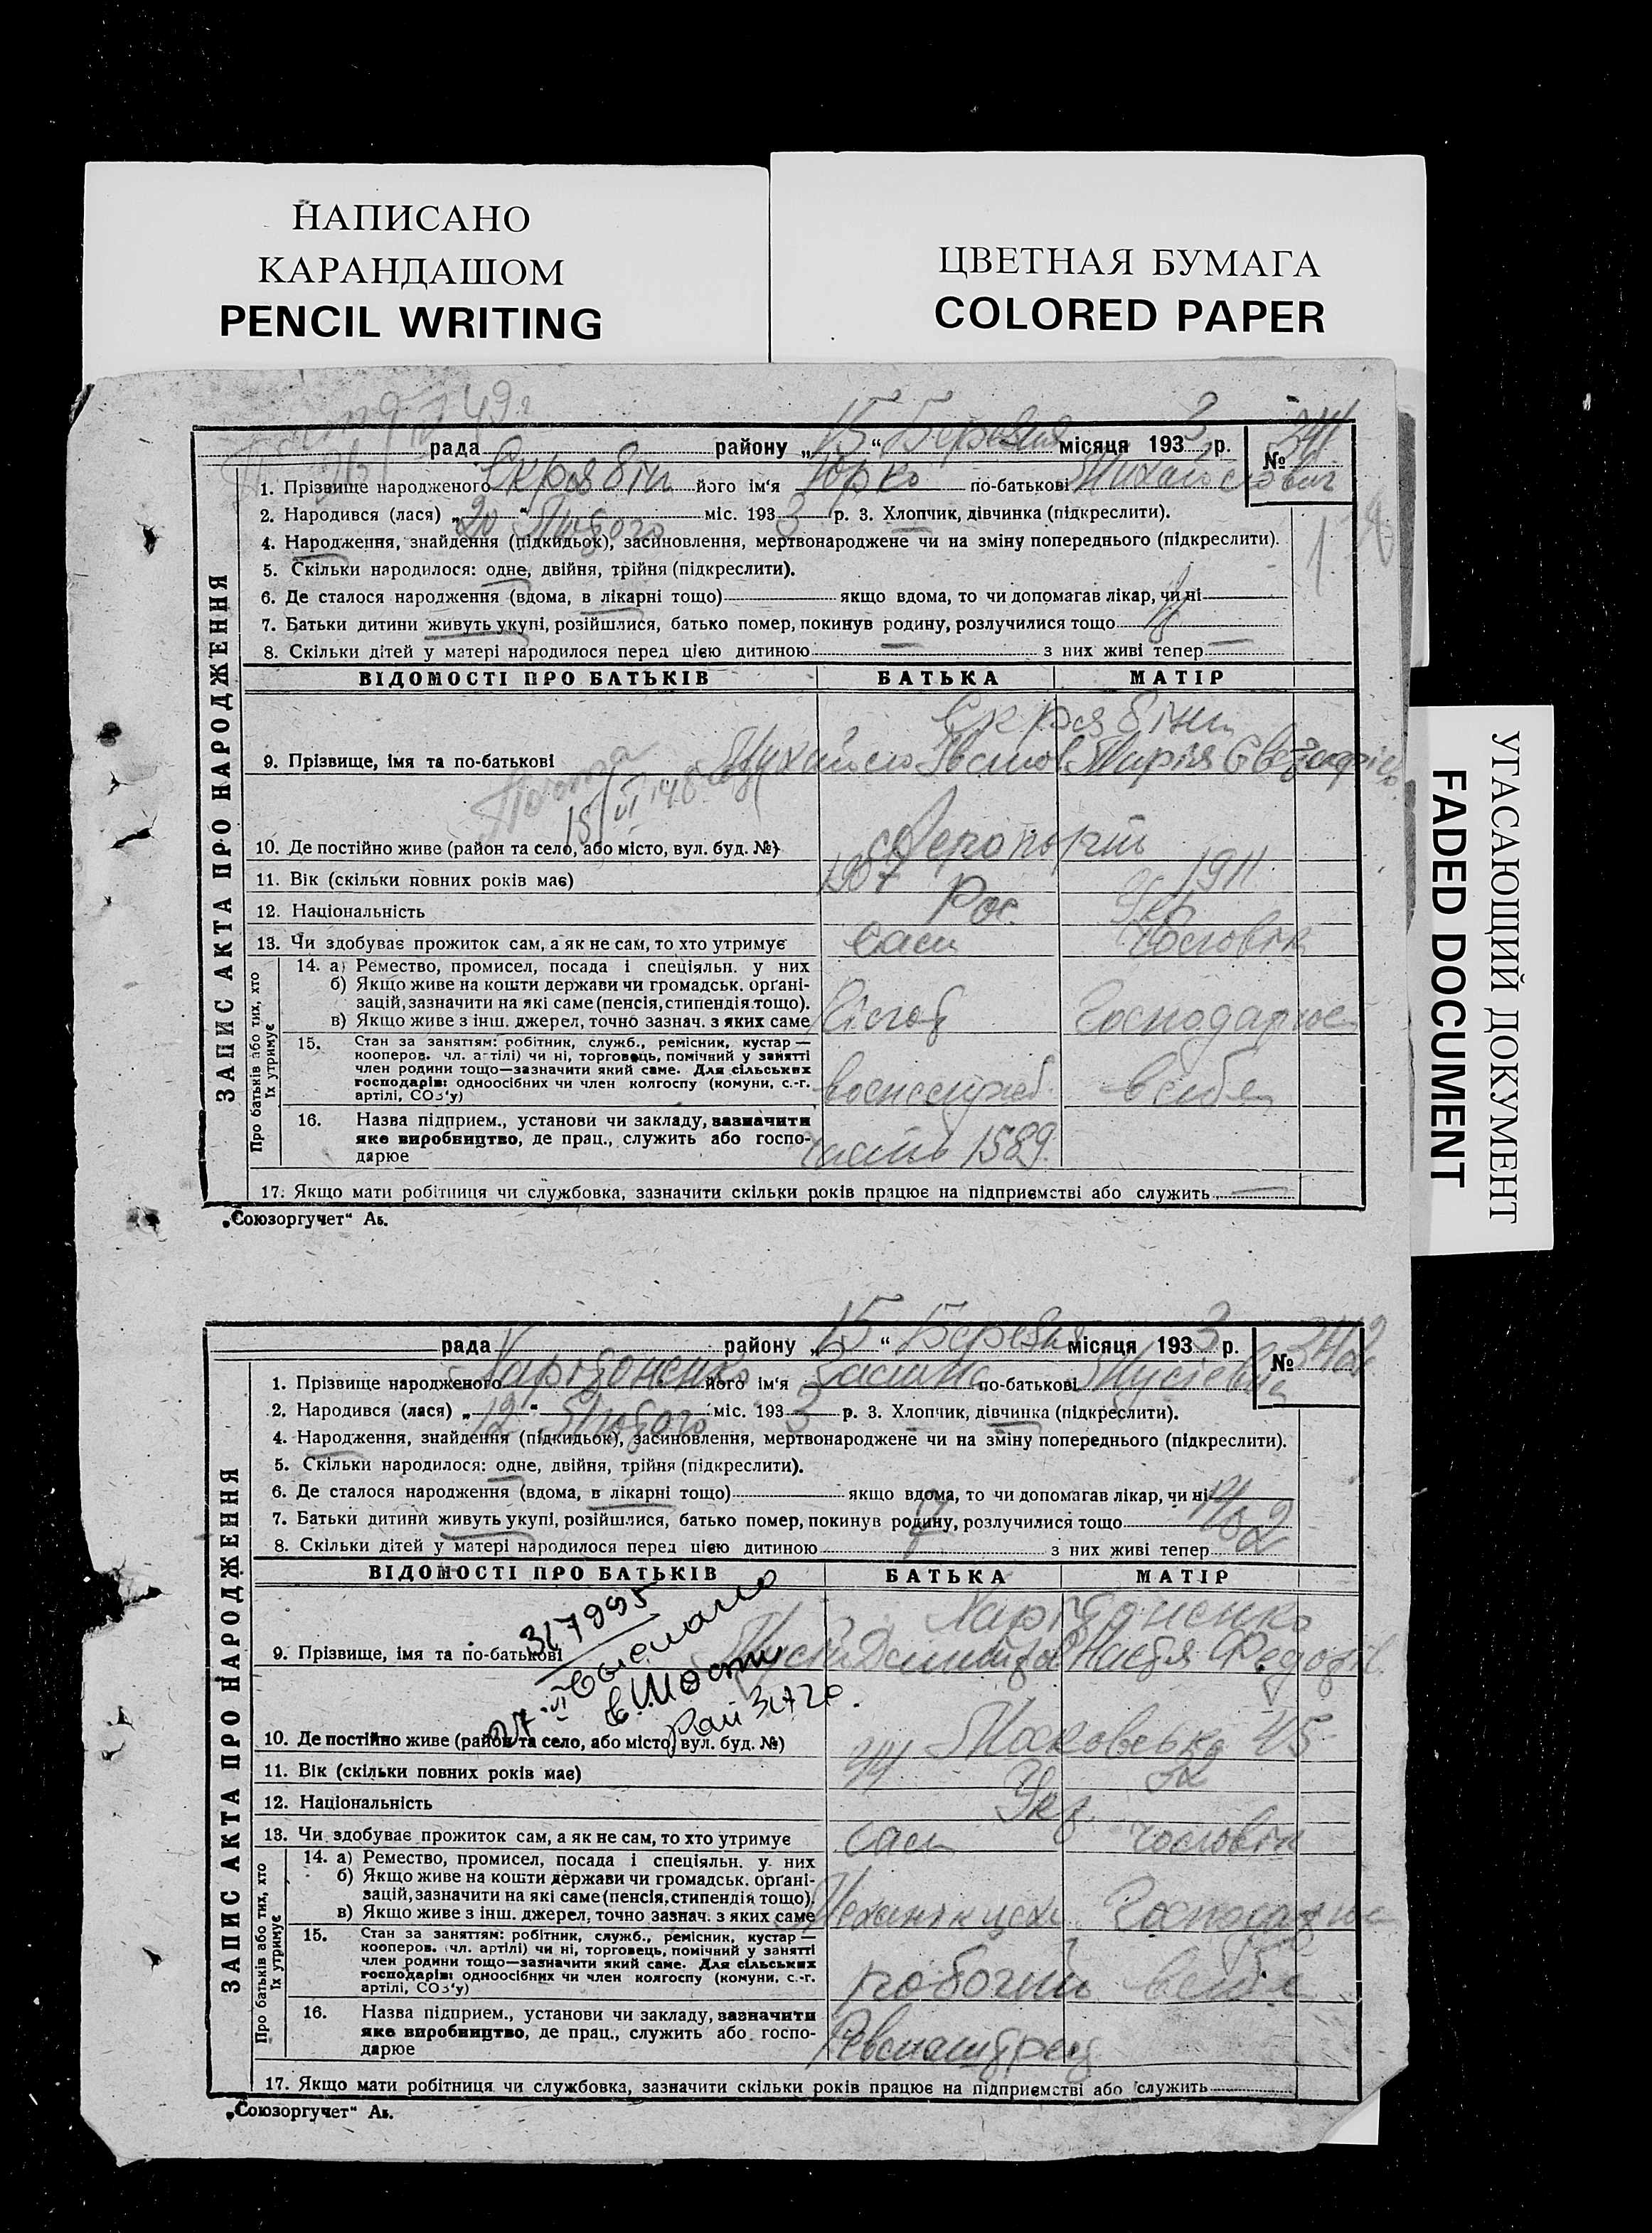 НАПИСАНО
КАРАНДАШОМ
PENCIL WRITING
ЦВЕТНАЯ БУМАГА
COLORED PAPER
УГАСАЮЩИЙ ДОКУМЕНТ
FADED DOCUMENT
ЗАПИС АКТА ПРО НАРОДЖЕННЯ
рада району „15“ Березня місяця 1933 р. № 341
1. Прізвище народженого Скрябін його ім'я Юрко по-батькові Михайлович
2. Народився (лася) „20“ Лютого міс. 1933 р. 3. Хлопчик, дівчинка (підкреслити).
4. Народження, знайдення (підкидьок), засиновлення, мертвонароджене чи на зміну попереднього (підкреслити).
5. Скільки народилося: одне, двійня, трійня (підкреслити).
6. Де сталося народження (вдома, в лікарні тощо) якщо вдома, то чи допомагав лікар, чи ні
7. Батьки дитини живуть укупі, розійшлися, батько помер, покинув родину, розлучилися тощо
8. Скільки дітей у матері народилося перед цією дитиною — з них живі тепер —
ВІДОМОСТІ ПРО БАТЬКІВ БАТЬКА МАТІР
Скрябіни
9. Прізвище, імя та по-батькові Михайло Марія
15/VI 48
10. Де постійно живе (район та село, або місто, вул. буд. №)
11. Вік (скільки повних років має) 1907 1911
12. Національність Рос. Укр
13. Чи здобуває прожиток сам, а як не сам, то хто утримує сам чоловік
Про батьків або тих, хто їх утримує
14. а) Ремество, промисел, посада і спеціяльн. у них
б) Якщо живе на кошти держави чи громадськ. орґані-
зацій, зазначити на які саме (пенсія, стипендія тощо).
в) Якщо живе з інш. джерел, точно зазнач. з яких саме Господарює
15. Стан за заняттям: робітник, служб., ремісник, кустар —
кооперов. чл. артілі) чи ні, торговець, помічний у занятті
член родини тощо—зазначити який саме. Для сільських
господарів: одноосібних чи член колгоспу (комуни, с.-г.
артілі, СОЗ'у) в себе
16. Назва підприєм., установи чи закладу, зазначити
яке виробництво, де прац., служить або госпо-
дарює часть 1589.
17. Якщо мати робітниця чи службовка, зазначити скільки років працює на підприємстві або служить —
„Союзоргучет“ Аь.
ЗАПИС АКТА ПРО НАРОДЖЕННЯ
рада району „15“ Березня місяця 1933 р. № 342
1. Прізвище народженого Харітоненко його ім'я по-батькові Мусієвна
2. Народився (лася) „12“ Лютого міс. 1933 р. 3. Хлопчик, дівчинка (підкреслити).
4. Народження, знайдення (підкидьок), засиновлення, мертвонароджене чи на зміну попереднього (підкреслити).
5. Скільки народилося: одне, двійня, трійня (підкреслити).
6. Де сталося народження (вдома, в лікарні тощо) якщо вдома, то чи допомагав лікар, чи ні
7. Батьки дитини живуть укупі, розійшлися, батько помер, покинув родину, розлучилися тощо
8. Скільки дітей у матері народилося перед цією дитиною з них живі тепер 2
ВІДОМОСТІ ПРО БАТЬКІВ БАТЬКА МАТІР
Харітоненко
9. Прізвище, імя та по-батькові Мусій Настя Федорів.
10. Де постійно живе (район та село, або місто, вул. буд. №) 45
11. Вік (скільки повних років має) 44 32
12. Національність Укр.
13. Чи здобуває прожиток сам, а як не сам, то хто утримує сам чоловік
Про батьків або тих, хто їх утримує
14. а) Ремество, промисел, посада і спеціяльн. у них
б) Якщо живе на кошти держави чи громадськ. орґані-
зацій, зазначити на які саме (пенсія, стипендія тощо).
в) Якщо живе з інш. джерел, точно зазнач. з яких саме Механік Господарює
15. Стан за заняттям: робітник, служб., ремісник, кустар —
кооперов. чл. артілі) чи ні, торговець, помічний у занятті
член родини тощо—зазначити який саме. Для сільських
господарів: одноосібних чи член колгоспу (комуни, с.-г.
артілі, СОЗ'у) робочий в себе
16. Назва підприєм., установи чи закладу, зазначити
яке виробництво, де прац., служить або госпо-
дарює
17. Якщо мати робітниця чи службовка, зазначити скільки років працює на підприємстві або служить
„Союзоргучет“ Аь.